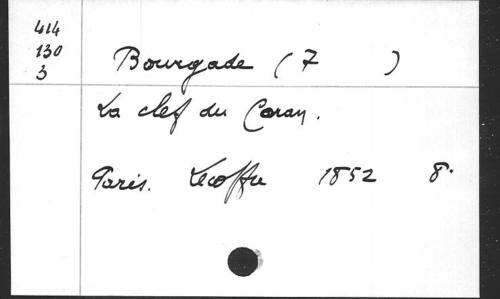 414
130
3
Bourgade (F )
La clef du Coran.
Paris. Lecoffre 1852 8°